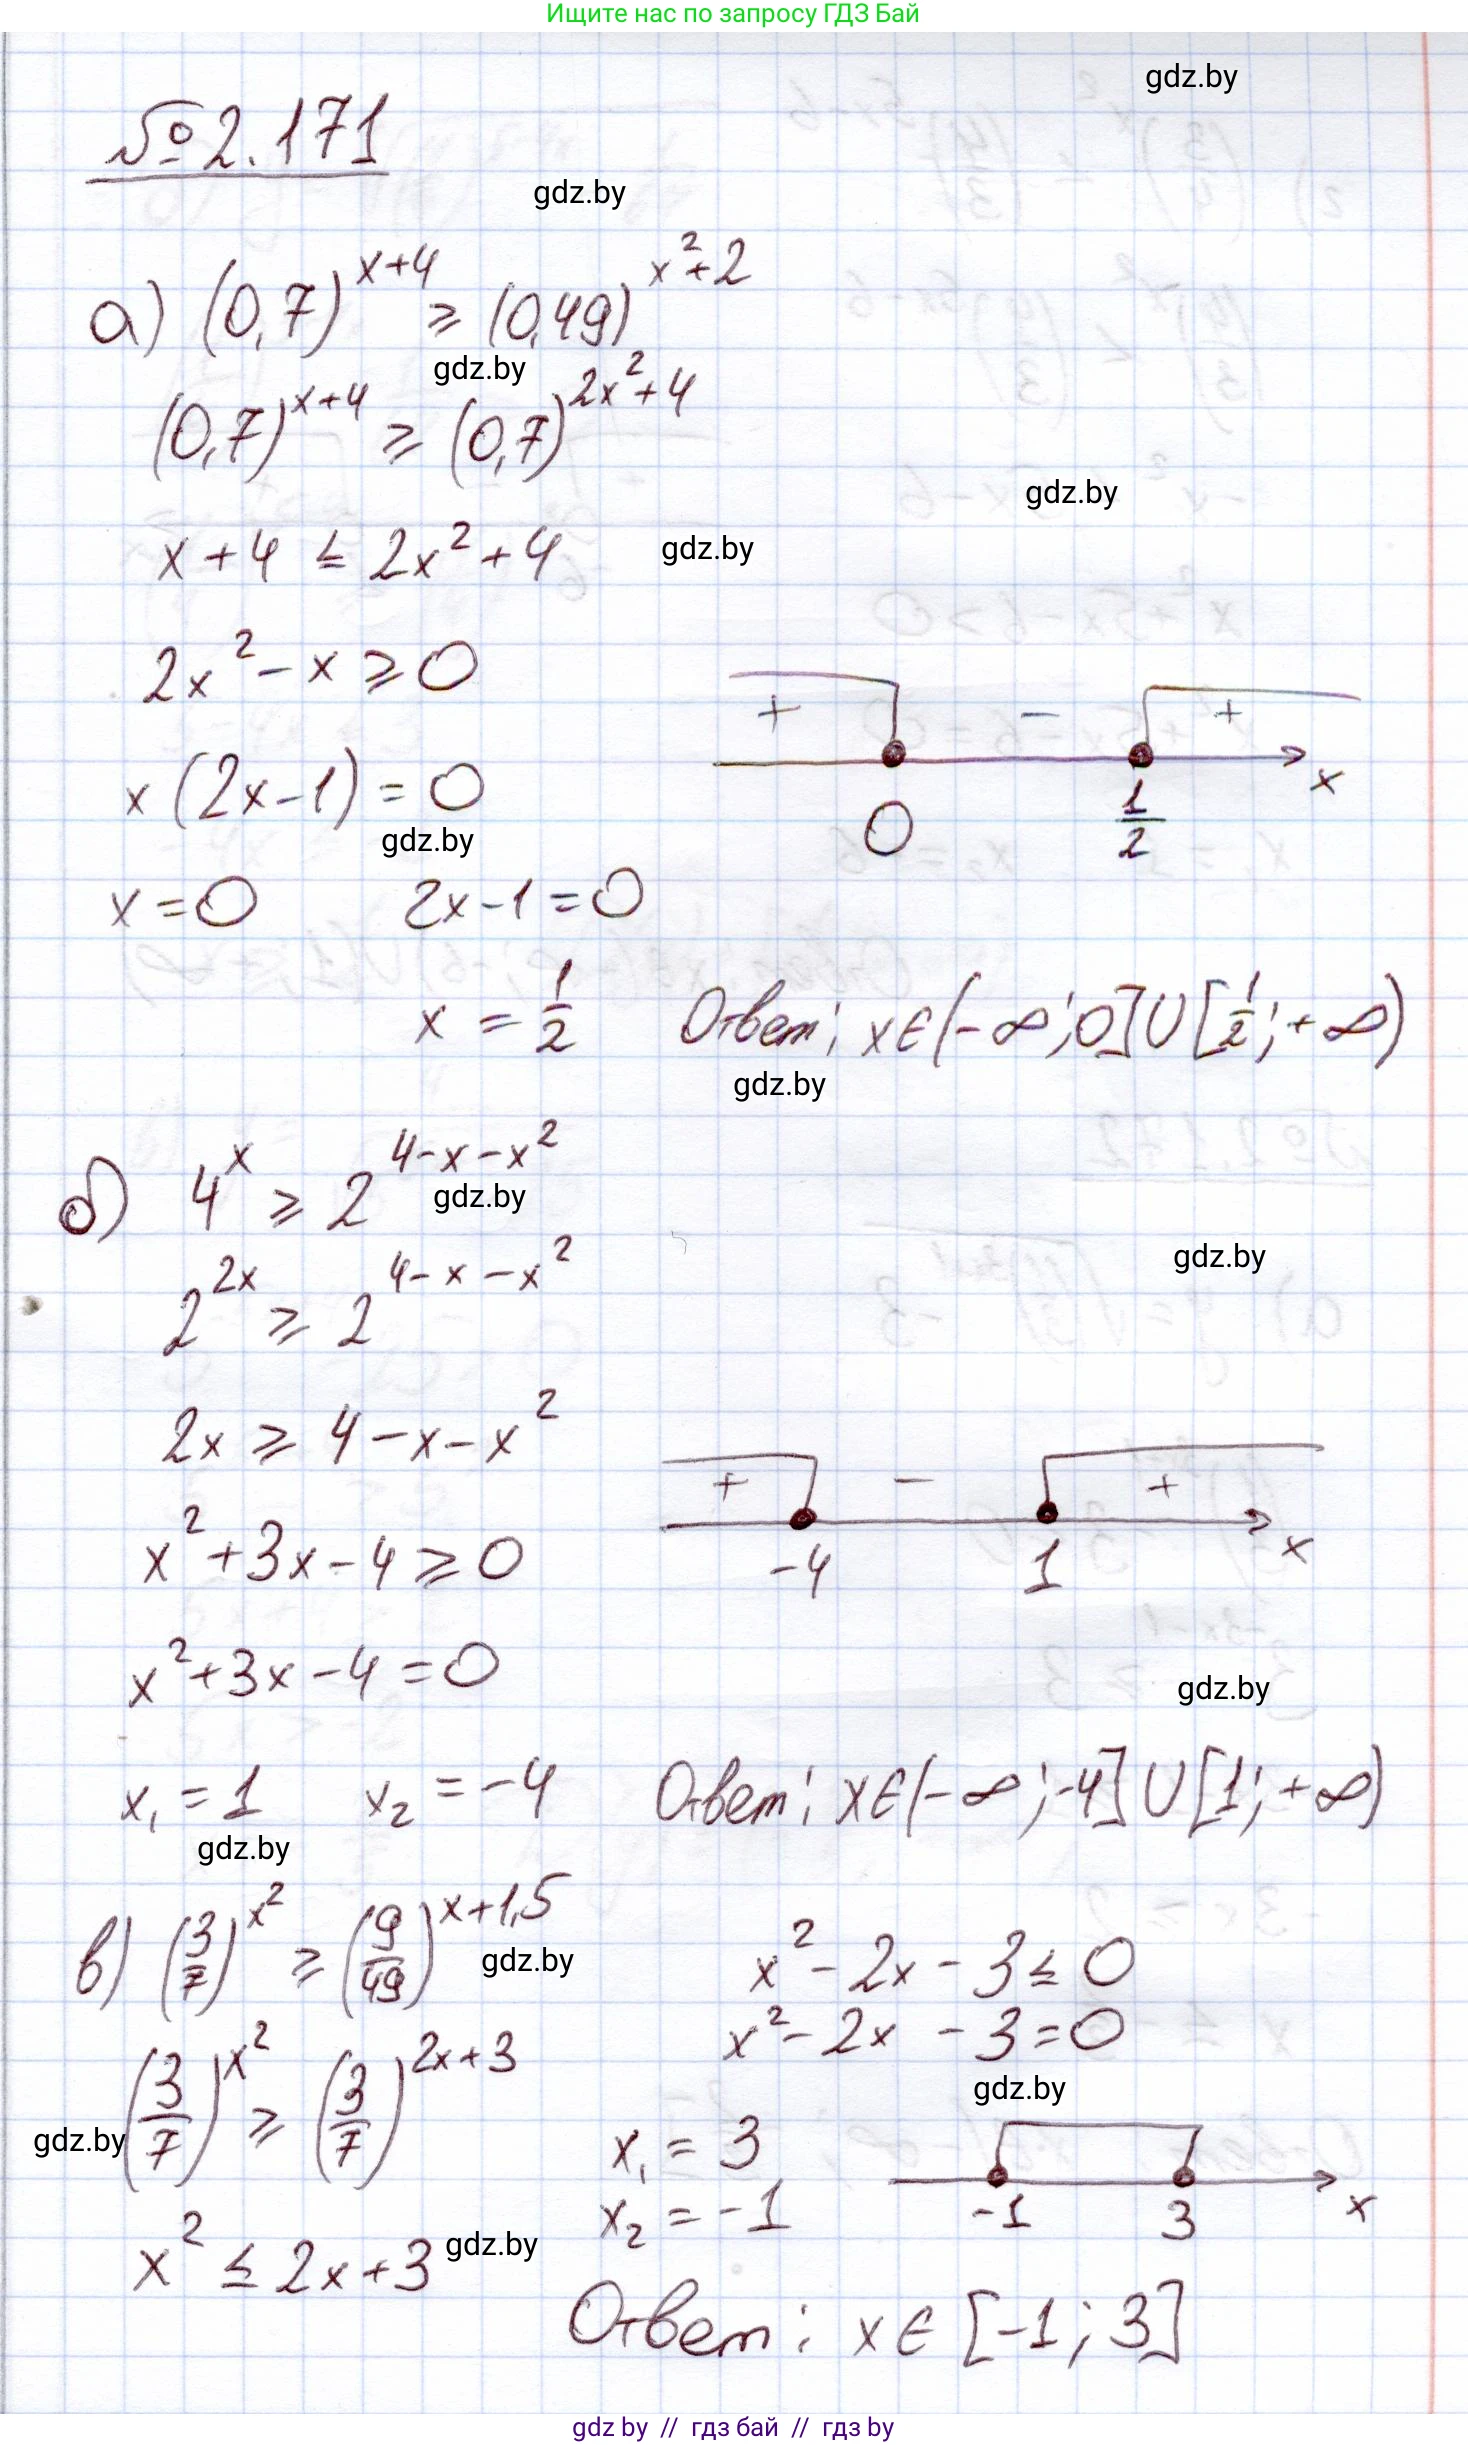 Ищите нас по запросу ГДЗ Бай
gdz.by
№2.171
gdz.by
а) (0,7)^{x+4} ⩾ (0,49)^{x²+2}
gdz.by
(0,7)^{x+4} ⩾ (0,7)^{2x²+4}
gdz.by
x+4 ≤ 2x²+4
gdz.by
2x²-x ⩾ 0
+ - +
x
0 1/2
x(2x-1)=0
gdz.by
x=0 2x-1=0
x = 1/2 Ответ: x∈(-∞;0]∪[1/2;+∞)
gdz.by
б) 4^x ⩾ 2^{4-x-x²}
gdz.by
gdz.by
2^{2x} ⩾ 2^{4-x-x²}
2x ⩾ 4-x-x²
+ - +
x
-4 1
x²+3x-4⩾0
x²+3x-4=0
gdz.by
x₁=1 x₂=-4 Ответ: x∈(-∞;-4]∪[1;+∞)
gdz.by
в) (3/7)^{x²} ⩾ (9/49)^{x+1,5}
gdz.by
(3/7)^{x²} ⩾ (3/7)^{2x+3}
gdz.by
x² ≤ 2x+3
gdz.by
x²-2x-3≤0
x²-2x-3=0
gdz.by
x₁=3
x₂=-1
-1 3 x
Ответ: x∈[-1;3]
gdz by // гдз бай // гдз by